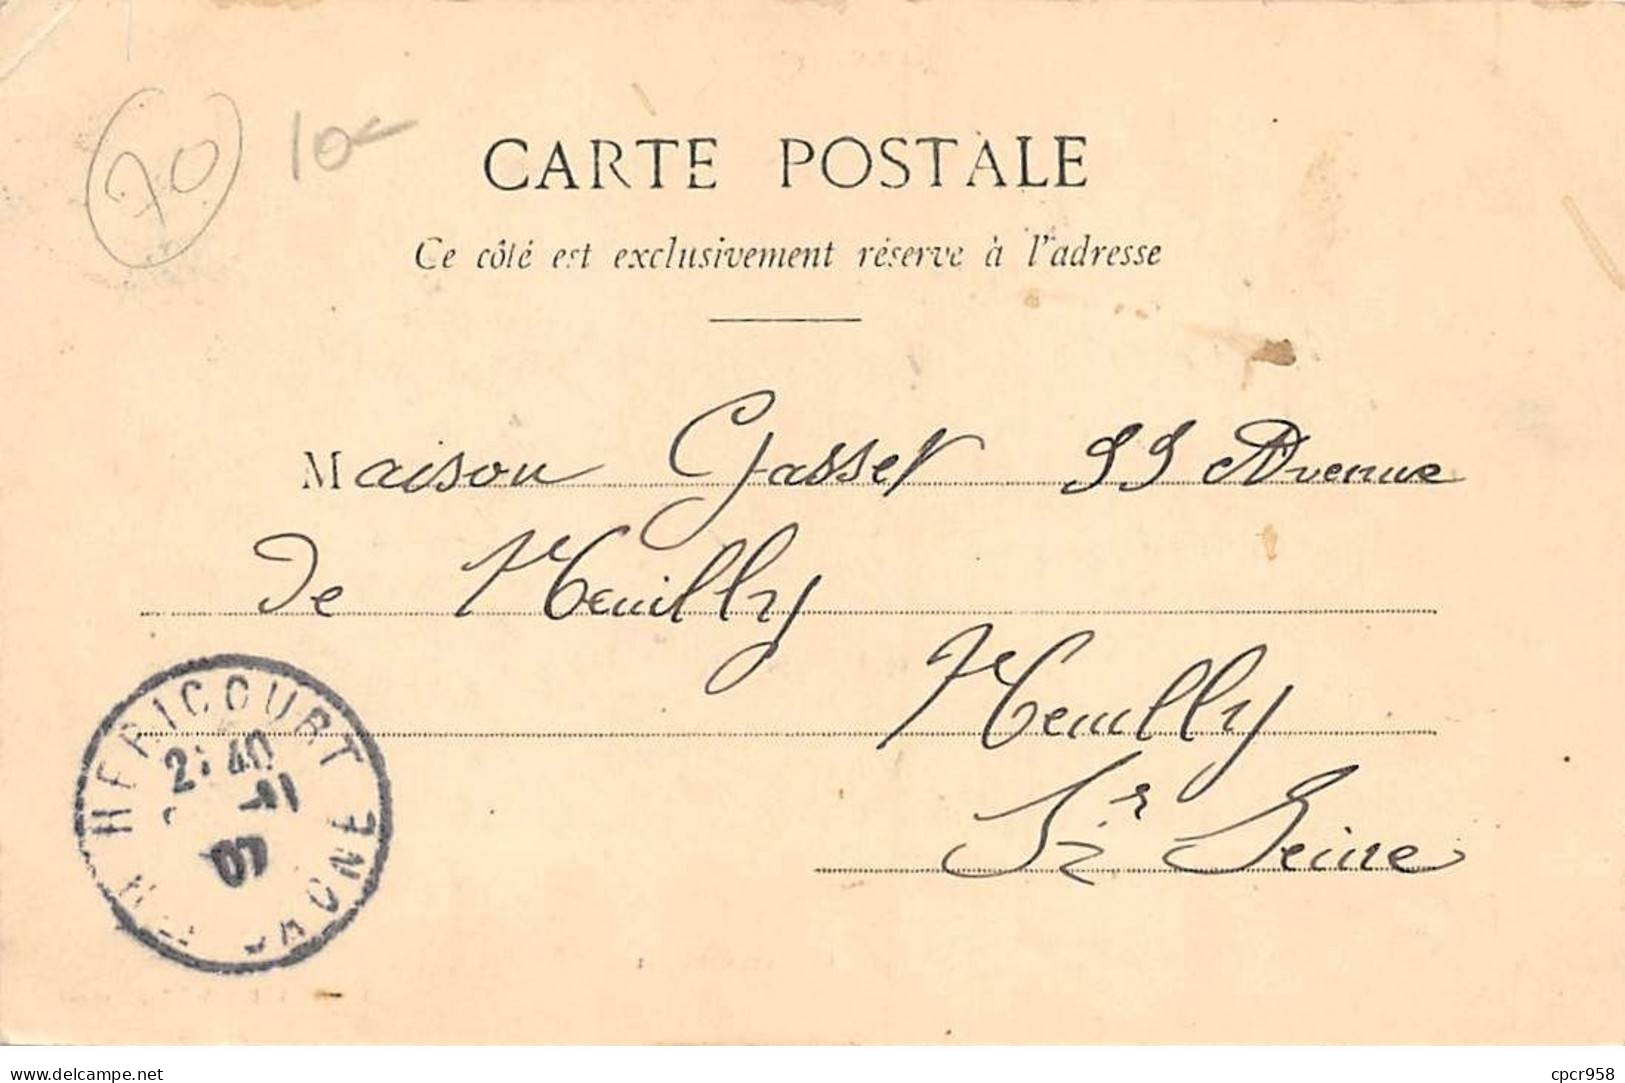 70 10
CARTE POSTALE
Ce côté est exclusivement réservé à l'adresse
Maison Gasset 99 Avenue
De Neuilly
Neuilly
Sr Seine
HERICOURT
2: 40
-11
07
HTE SAONE
delcampe.net
cpcr958